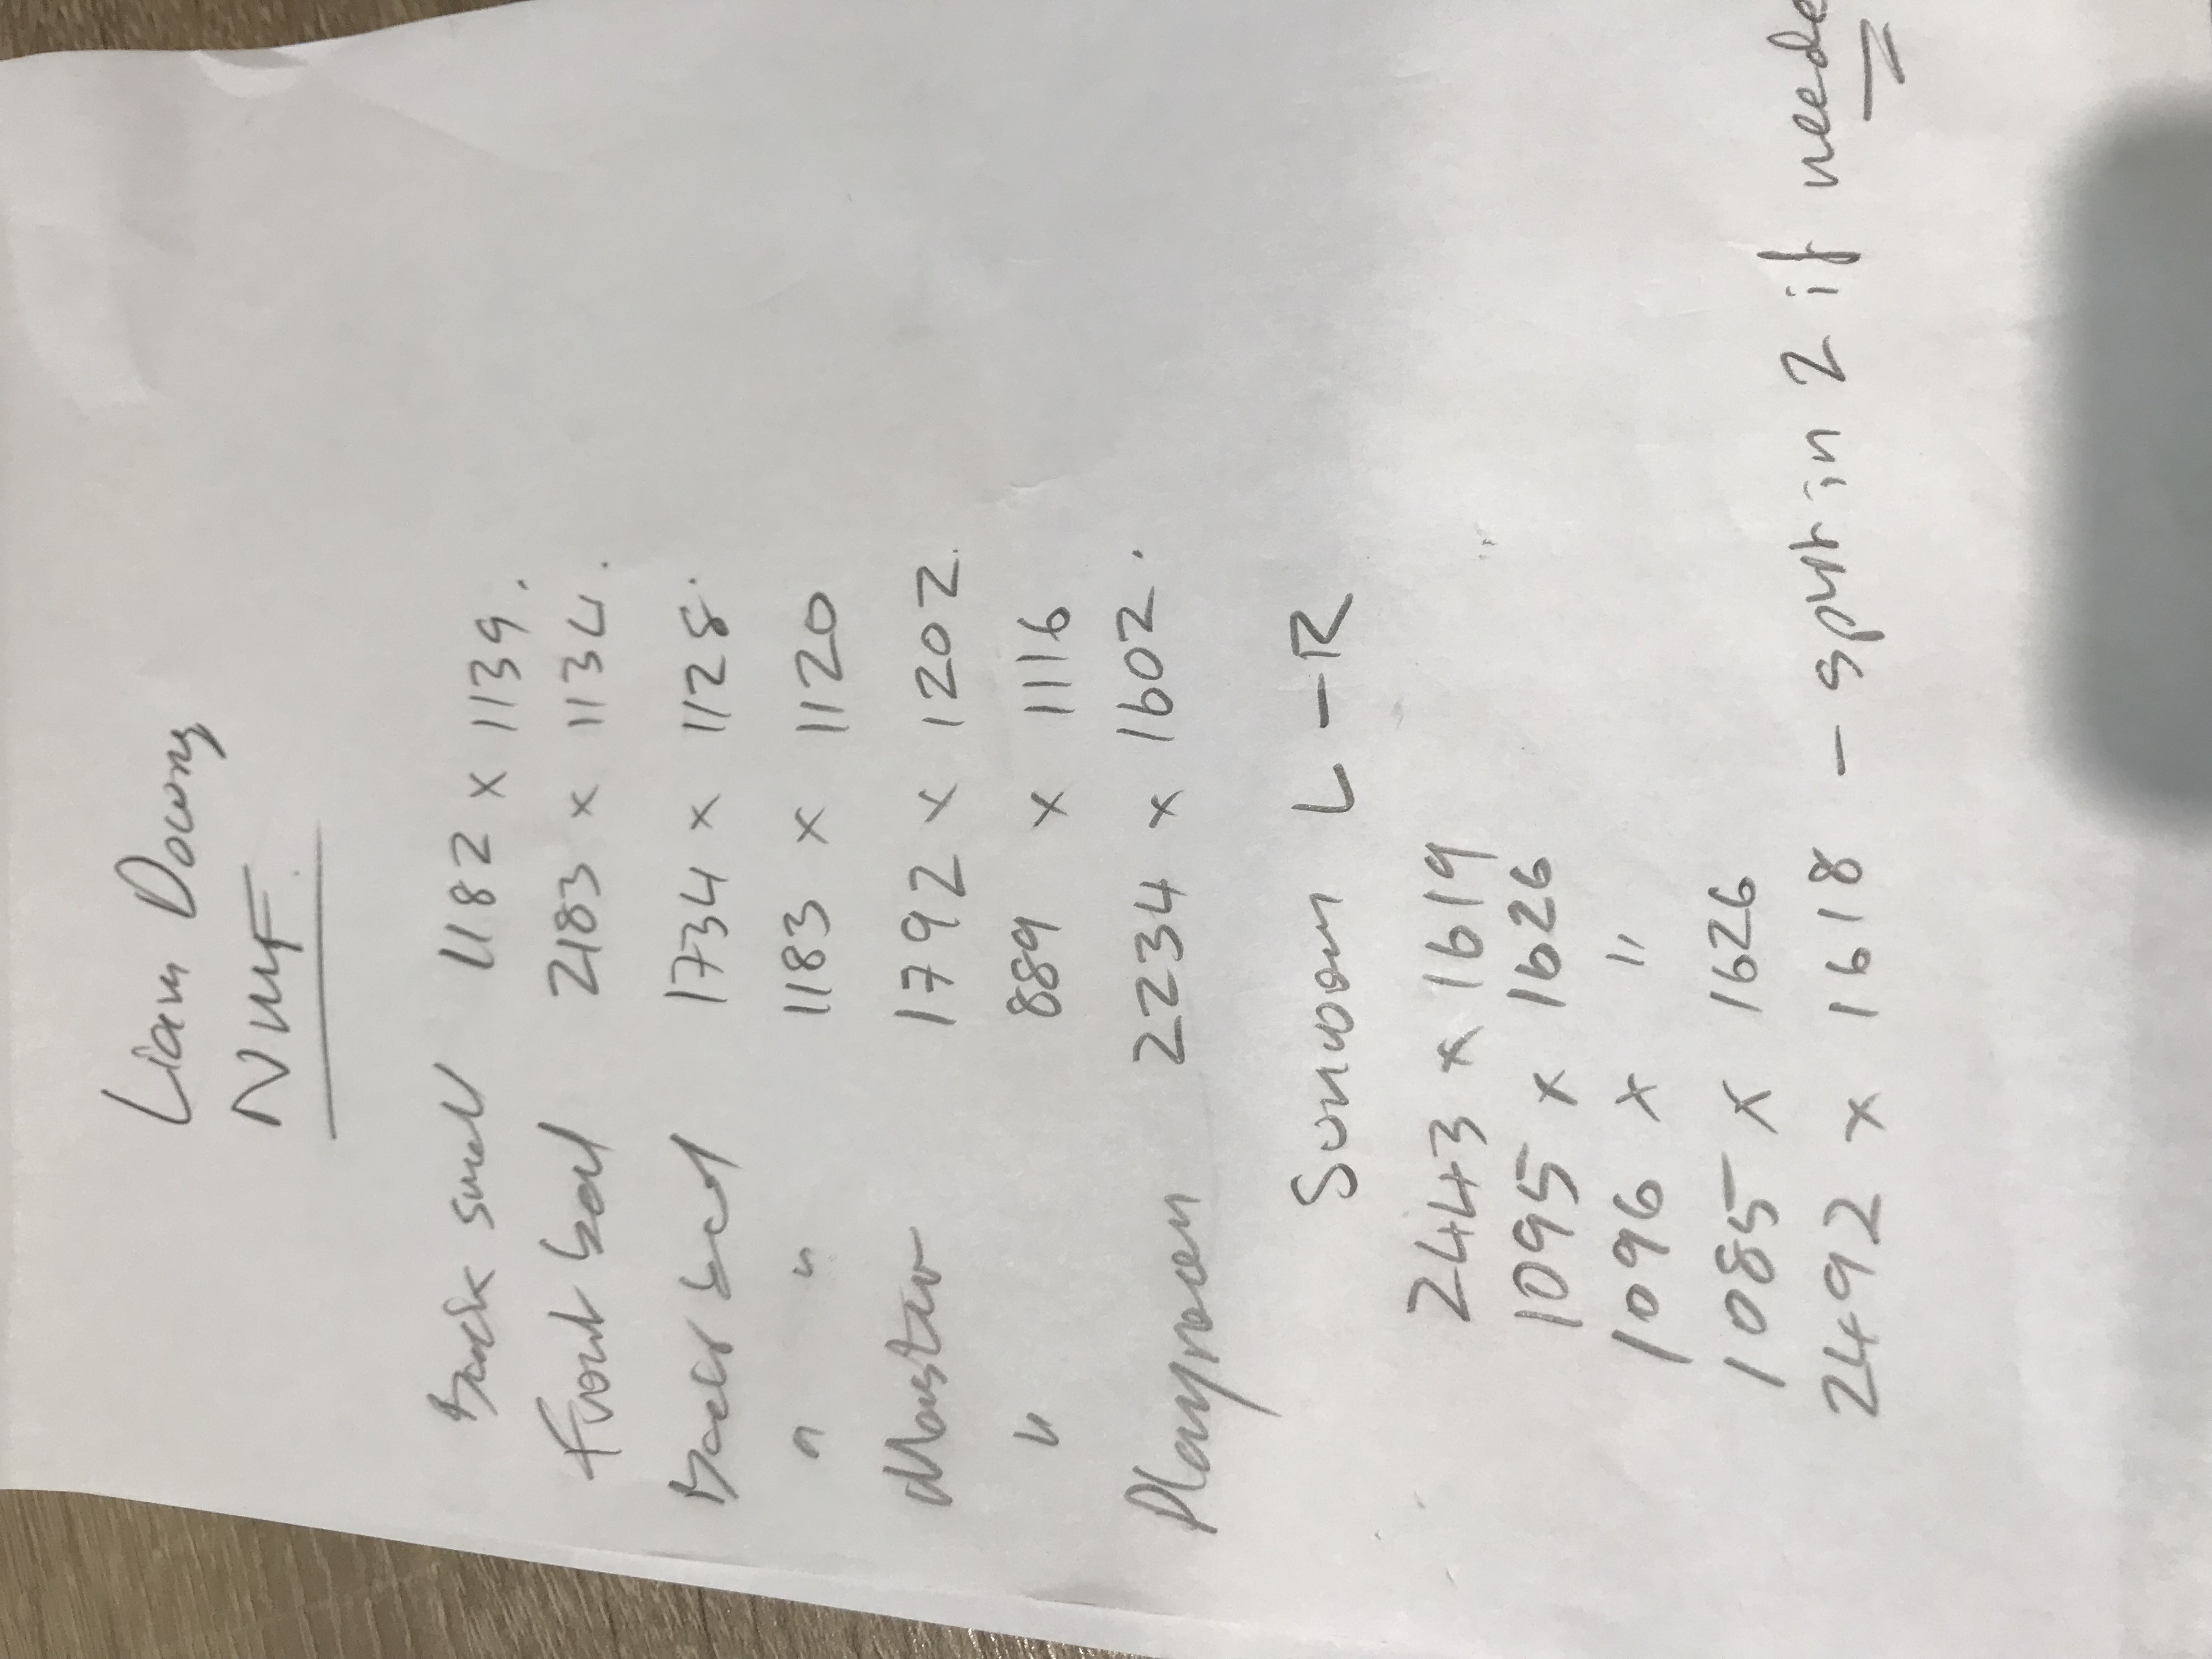 Liam Downy
NWF
Back small 1182 x 1139.
Front bed 2183 x 1134.
Back bed 1734 x 1128.
" " 1183 x 1120
Master 1792 x 1202.
" 889 x 1116
Playroom 2234 x 1602.
Sunroom L-R
2443 x 1619
1095 x 1626
1096 x "
1085 x 1626
2492 x 1618 - split in 2 if neede